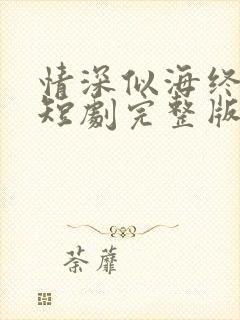 情深似海终
短劇完整版
荼蘼